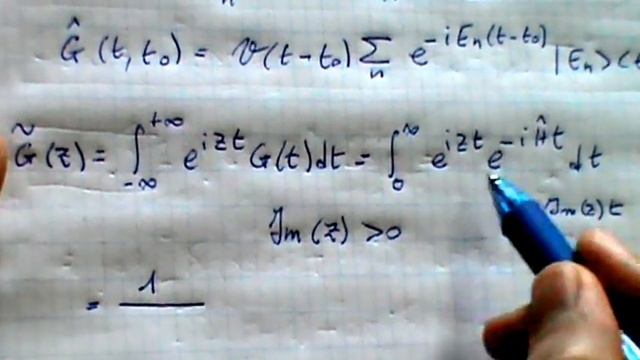 Ĝ(t,t₀) = ϑ(t-t₀) ∑ₙ e^{-iEₙ(t-t₀)} |Eₙ><
G̃(z) = ∫_{-∞}^{+∞} e^{izt} G(t)dt = ∫_0^∞ e^{izt} e^{-iĤt} dt
Im(z)t
Im(z) >0
= 1